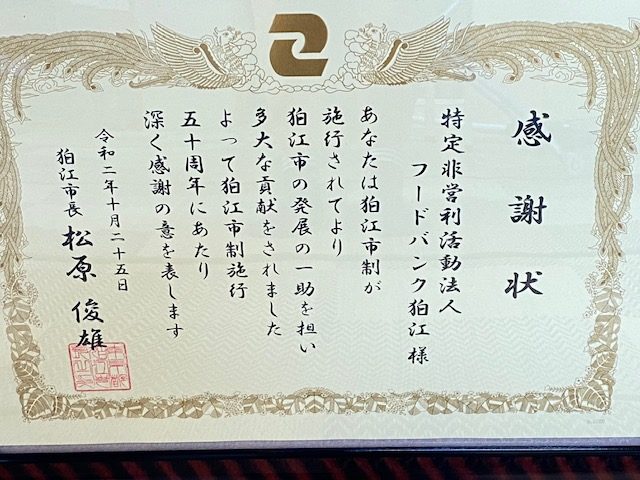 感謝状
特定非営利活動法人
フードバンク狛江様
あなたは狛江市制が
施行されてより
狛江市の発展の一助を担い
多大な貢献をされました
よって狛江市制施行
五十周年にあたり
深く感謝の意を表します
令和二年十月二十五日
狛江市長 松原俊雄